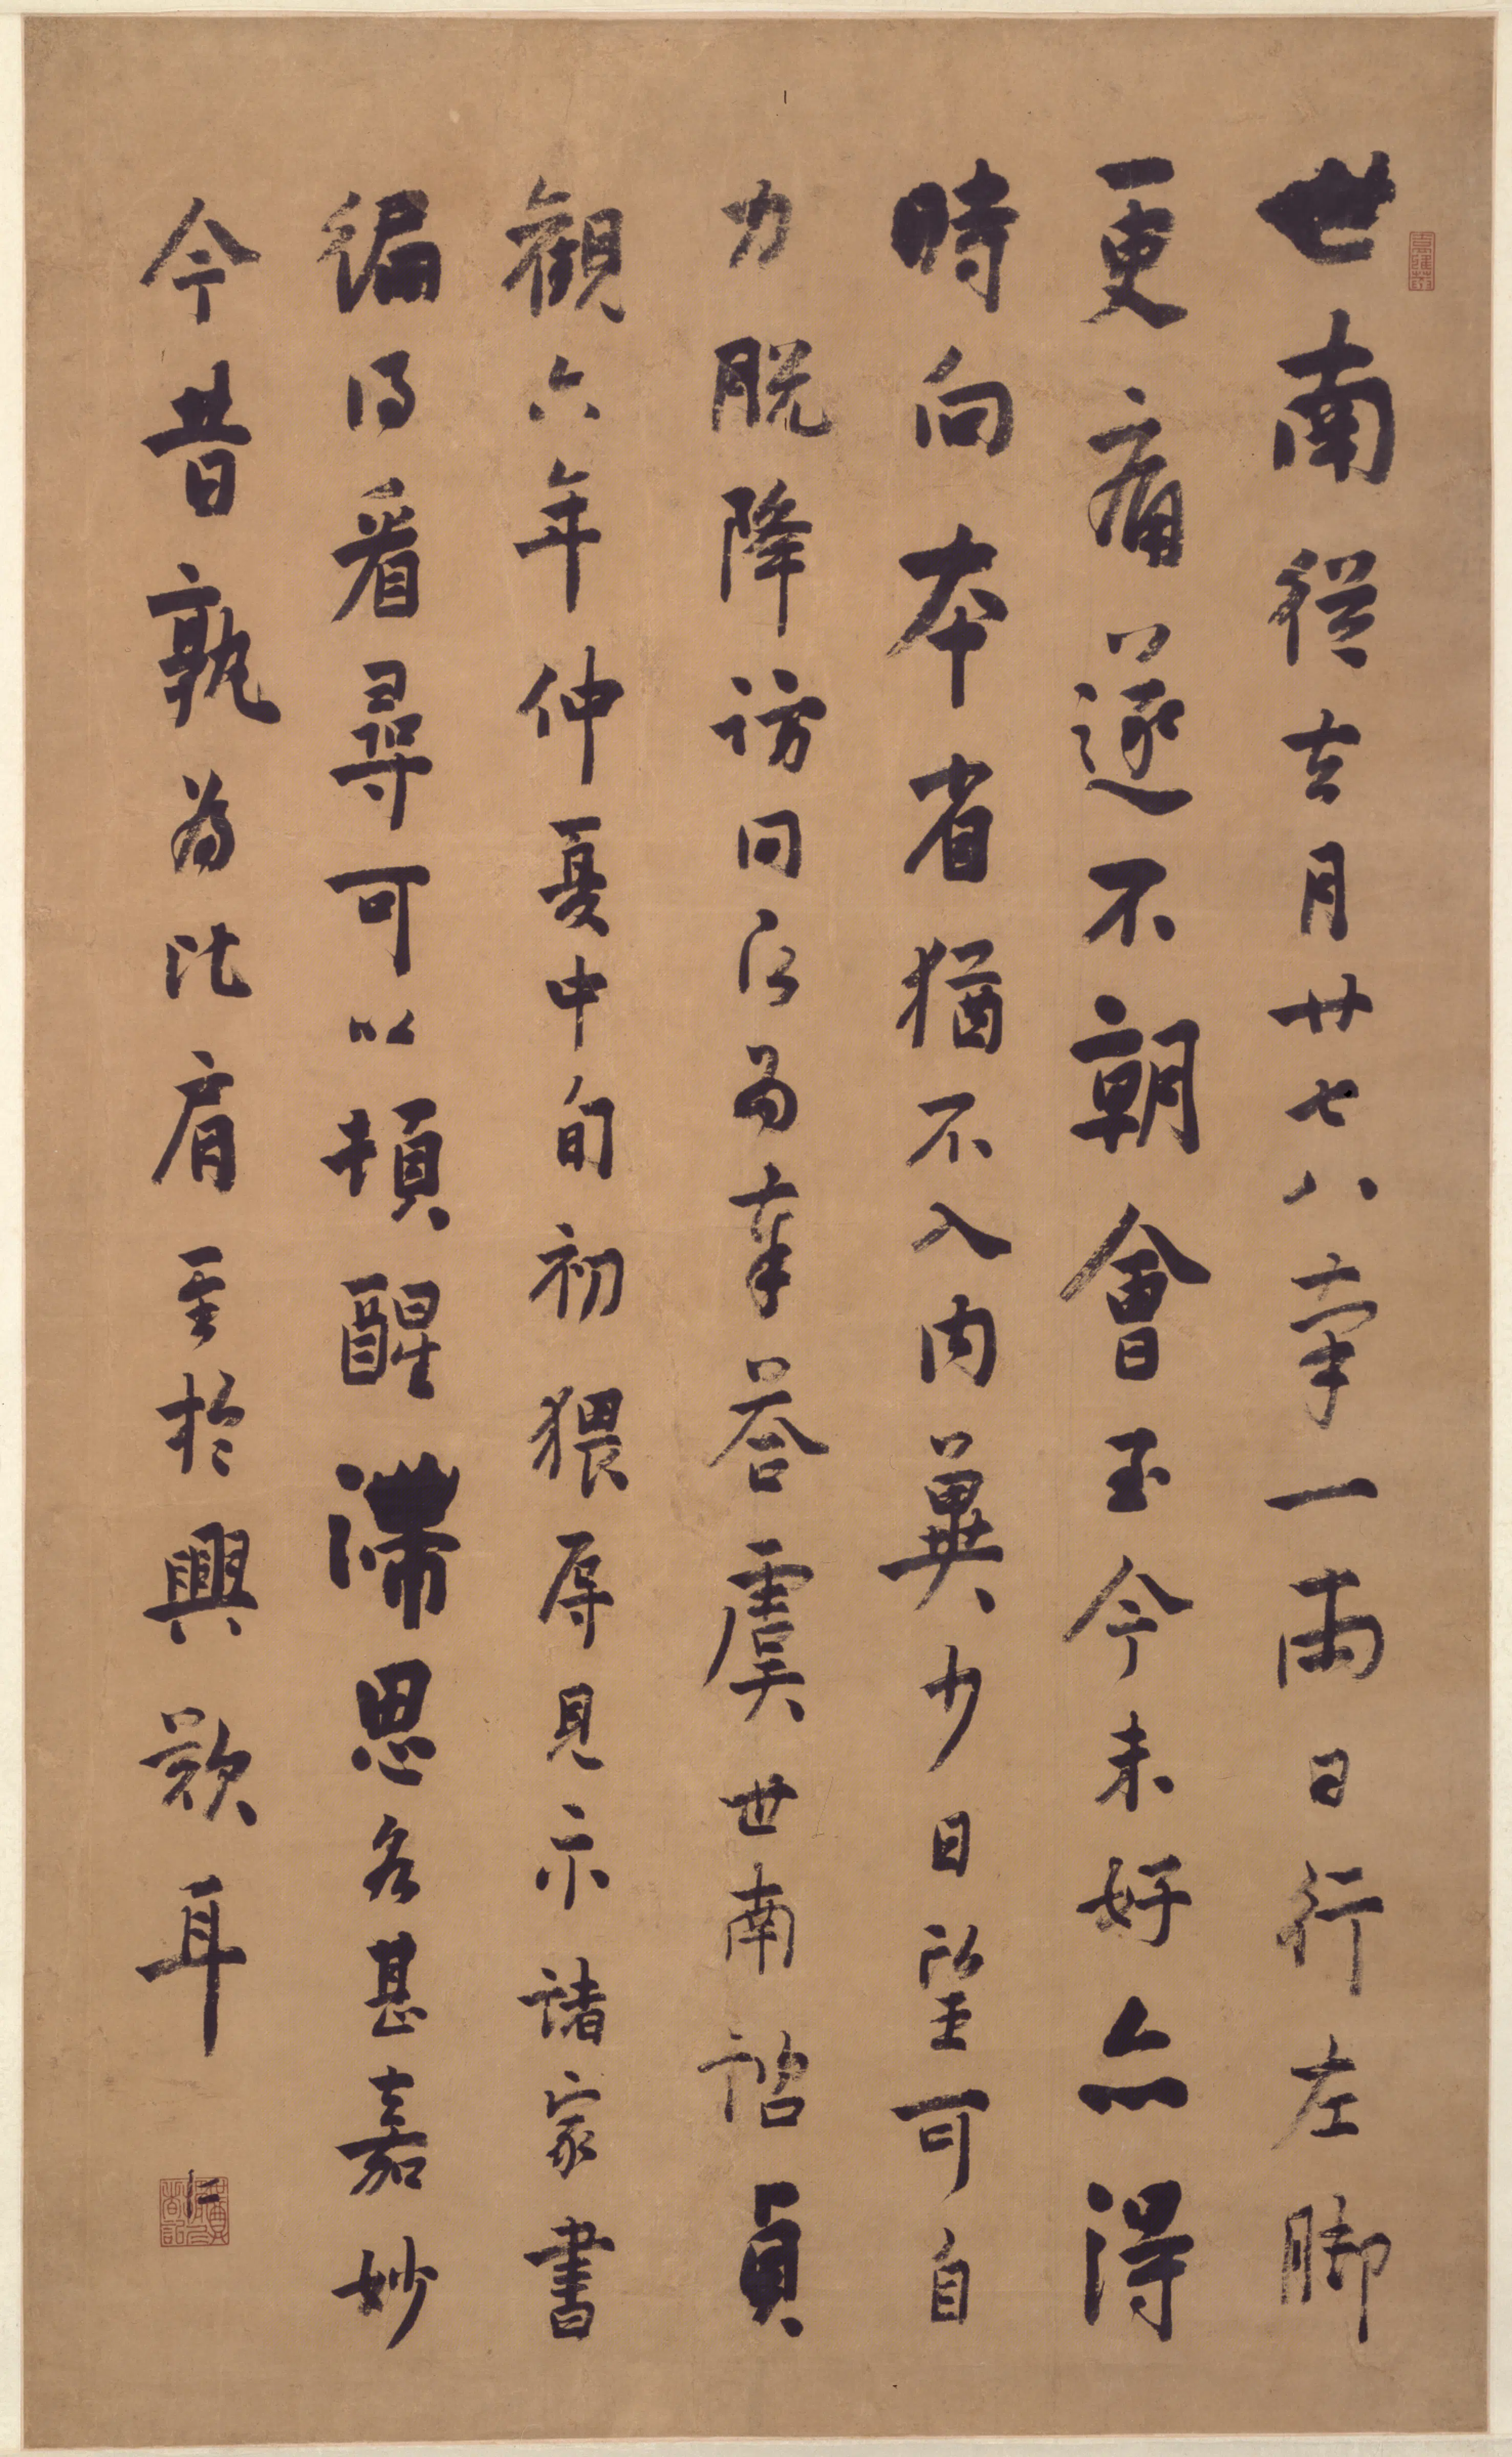 世南從去月廿七八率一兩日行左脚
更痛遂不朝會至今未好亦得
時向本省猶不入内冀少日望可自
力脱降訪問為奉荅虞世南諮貞
觀六年仲夏中旬初猥辱見示諸家書
徧得看尋可以頓醒滯思各甚嘉妙
今昔孰為比肩至於興歎耳